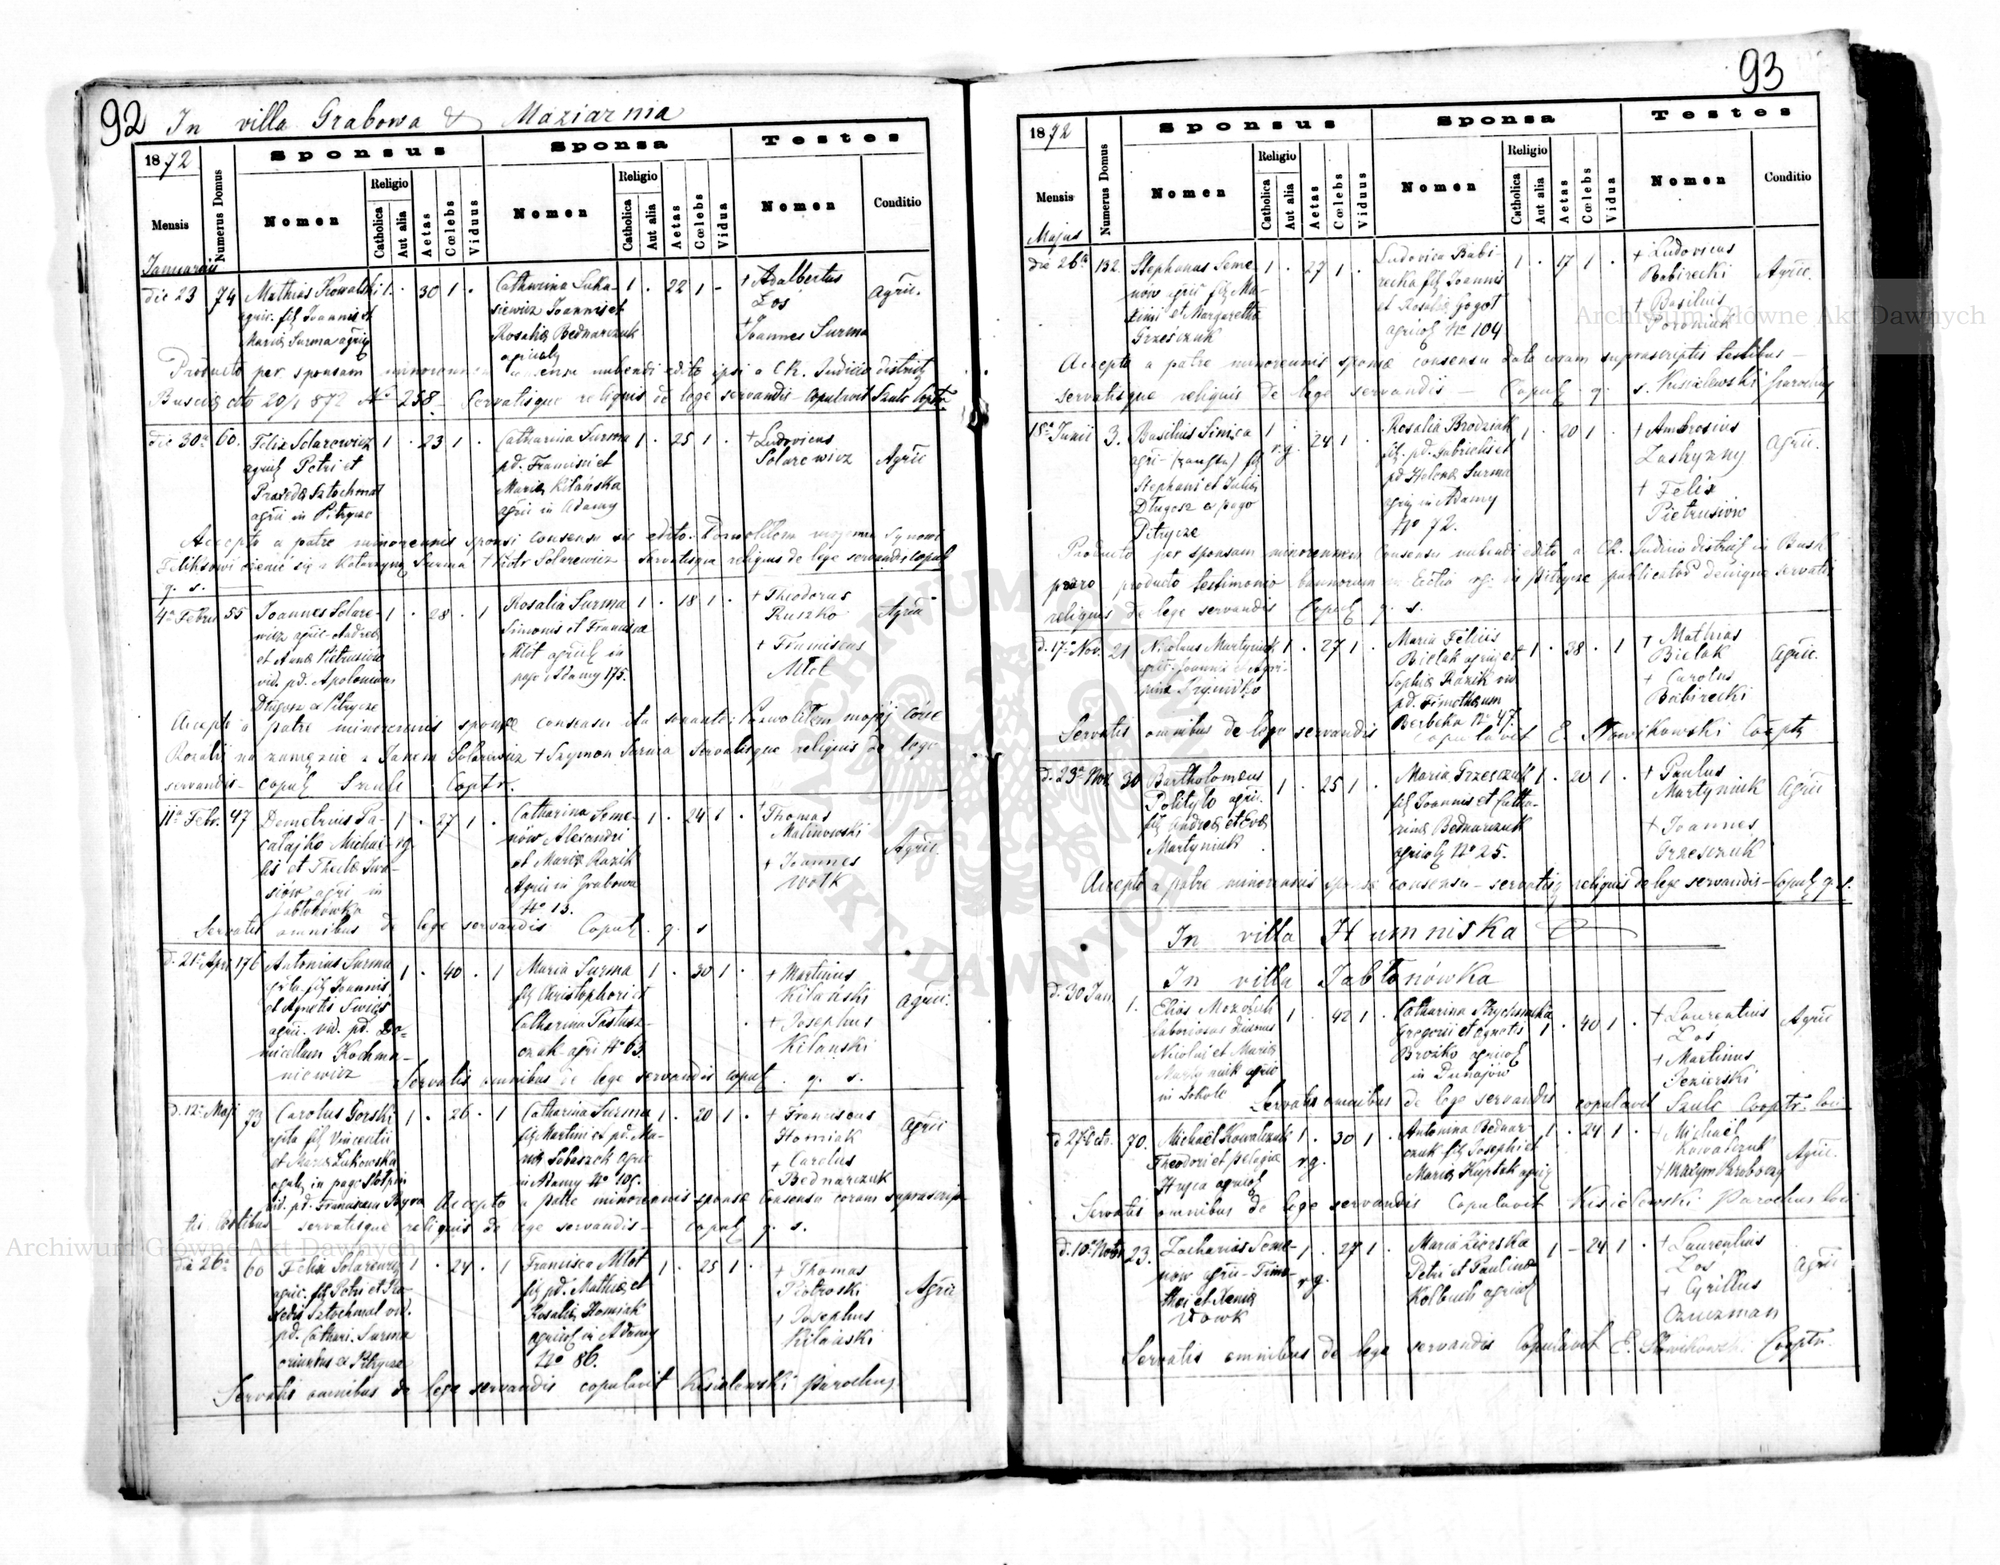 92 In villa Grabowa & Maziarnia
1872
Mensis
Numerus Domus
Sponsus
Nomen
Religio
Catholica
Aut alia
Aetas
Cœlebs
Viduus
Sponsa
Nomen
Religio
Catholica
Aut alia
Aetas
Cœlebs
Vidua
Testes
Nomen
Conditio
Januarii
die 23
74
Mathias Kowalski
agric. filg Joannis et
Maria Surma
1 . 30 1 .
Catharina Luka-
siewicz Joannis et
Rosaliæ Bednarczuk
agricol
1 . 22 1 -
+ Adalbertus
Łoś
+ Joannes Surma
Agric.
Producto per sponsam consensu nubendi edito ipsi a CK. Judicio district
Buscen dto 20/1 872 No 258 - Servatisque reliquis de lege servandis copulavit Szulc Coptr.
die 30a
60.
Felix Solarewicz
Petri et
Praxedæ Sztochmal
agric in Pitrycze
1 . 23 1 .
Catharina Surma
pd. Francisci et
Maria Kilańska
agric in Adamy
1 . 25 1 .
+ Ludovicus
Solarewicz
Agric
Accepto a patre minorennis sponsi consensu sic dicto: Pozwoliłem mojemu Synowi
Feliksowi żenić się z Katarzyną Surma + Piotr Solarewicz Servatisque reliquis de lege servandis copul
q. s.
4a Febru
55
Joannes Solare-
wicz agric. Andreæ
et Anna Pietrusiew
vid. pd. Apoloniam
Długosz ex Pitrycze
1 . 28 . 1
Rosalia Surma
Simonis et Francisca
Młot agricol in
pago Adamy 175.
1 . 18 1 .
+ Theodorus
Ruszko
+ Franciscus
Młot
Agric
Accepto a patre minorennis sponsæ consensu ita sonante: Pozwoliłem mojéj córce
Rozalii na zamęzcie z Janem Solarewicz + Szymon Surma Servatisque reliquis de lege
servandis - copul Szulc Coptr.
11a Febr.
47
Demetrius Pa-
łajko Michae-
lis et Theclæ
agri in
Jabłonówka
1 . 27 1 .
rg.
Catharina Seme-
nów Alexandri
et Maria Kazik
Agric in Grabowa
No 13.
1 . 24 1 .
+ Thomas
Malinowski
+ Joannes
Wołk
Agric.
Servatis omnibus de lege servandis Copul. q. s
d. 21a Apr
176
Antonius Surma
filg Joannis
et Agnetis Święs
agric. vid. pd. Do-
micellam Kochma-
niewicz
1 . 40 . 1
Maria Surma
filg Christophori et
Catharina Pastusz-
czak agri No 63.
1 . 30 1 .
+ Martinus
Kilański
+ Josephus
Kilanski
Agric.
Servatis omnibus de lege servandis copul . q. s.
d. 12a Maji
73
Carolus Gorski
filg Vincentii
et Maria Lukowska
in pago
vid. pd. Franciscam
1 . 26 . 1
Catharina Surma
filg Martini et pd. Ma-
ria Sobaszek agric
in Adamy No 105.
1 . 20 1 .
+ Franciscus
Homiak
+ Carolus
Bednarczuk
Agric
Accepto a patre minorennis sponsæ consensu coram suprascrip-
tis testibus - servatisque reliquis de lege servandis - copul q. s.
die 26a
60
Felix Solarewicz
agric. filg Petri et Pra-
xedis Sztochmal vid.
pd. Cathari. Surma
oriundus ex Pitrycze
1 . 24 . 1
Francisca Młot
filg pd. Mathiæ et
Rosaliæ Homiak
agricol in Adamy
No 86.
1 . 25 1 .
+ Thomas
Piotroski
+ Josephus
Kilański
Agric
Servatis omnibus de lege servandis copulavit Kisielewski Parochus
93
1872
Mensis
Numerus Domus
Sponsus
Nomen
Religio
Catholica
Aut alia
Aetas
Cœlebs
Viduus
Sponsa
Nomen
Religio
Catholica
Aut alia
Aetas
Cœlebs
Vidua
Testes
Nomen
Conditio
Majus
die 26a
132.
Stephanus Seme-
nów agric filg Ma-
ximi et Margaretha
Grześczuk
1 . 27 1 .
Ludovica Babi-
recka filg Joannis
et Rosalia Gogot
agricol No 104
1 . 17 1 .
+ Ludovicus
Babirecki
+ Basilius
Poroniuk
Agric.
Accepto a patre minorennis sponsæ consensu dato coram suprascriptis testibus -
servatisque reliquis de lege servandis - Copul. q. s. Kisielewski parochus
18a Junii
3.
Basilius Sinica
agric - filg
Stephani et Julia
Długosz ex pago
Pitrycze
1 rg. 24 1 .
Rosalia Brodziak
filg. pd. Gabrielis et
pd Helena Surma
agric in Adamy
No 72.
1 . 20 1 .
+ Ambrosius
Zashyzny
+ Felix
Pietrusiów
Agric.
Producto per sponsam minorennem consensu nubendi edito a CK. Judicio district in Busk
porro producto testimonio bannorum ex Eclia rg. in Pitrycze publicator denique servatis
reliquis de lege servandis Copul q. s.
d. 17a Nov.
21
Nicolaus Martyniuk
agric. Joannis et Agri-
pina
1 . 27 1 .
Maria Felicis
Bielak agric et
Sophia Kazik vid
pd. Timotheum
Berbeka No 47.
1 . 38 . 1
+ Mathias
Bielak
+ Carolus
Babirecki
Agric.
Servatis omnibus de lege servandis copulavit E. Nowikowski Cooptr
d. 23a Nov.
30
Bartholomeus
Polityło agric.
filg Andreæ et Eva
Martyniuk
1 . 25 1 .
Maria Grzesczuk
filg Joannis et Catha-
rina Bednarczuk
agricol No 25.
1 . 20 1 .
+ Paulus
Martyniuk
+ Joannes
Grzesczuk
Agric
Accepto a patre minorennis sponsæ consensu - servatisq reliquis de lege servandis - Copul q. s.
In villa Humniska
In villa Jabłonówka
d. 30 Jan.
1.
Elias Mozoluk
laboriosus
Nicolai et Maria
agric
in Sokole
1 . 42 1 .
Catharina
Gregorii et Agnetis
Brozko agricol
in Dunajów
1 . 40 1 .
+ Laurentius
Łos
+ Martinus
Jezierski
Agric
Servatis omnibus de lege servandis copulavit Szulc Cooptr. loci
d 27a Octo.
70.
Michaël Kowalczuk
Theodori et Pelagiæ
Hryca agricol
1 . 30 1 .
rg.
Antonina Bednar-
czuk filg Josephi et
Maria Kuptak agric
1 . 24 1 .
+ Michaël
Kowalczuk
+ Martyn Karabowy
Agric.
Servatis omnibus de lege servandis Copulavit Kisielewski Parochus loci
d. 10a Nobr
23.
Zacharias Seme-
now agric - Timo-
thei et Xenia
Vowk
1 . 27 1 .
rg.
Maria Ziorska
Petri et Paulina
Kolbuch agricol
1 - 24 1 .
+ Laurentius
Łos
+ Cyrillus
Czuczman
Agric
Servatis omnibus de lege servandis Copulavit E. Nowikowski Cooptr.
Archiwum Główne Akt Dawnych
Archiwum Główne Akt Dawnych
ARCHIWUM GŁÓWNE AKT DAWNYCH